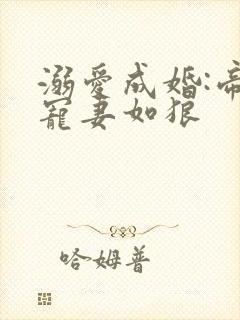 溺爱成婚:帝
宠妻如狼
哈姆普